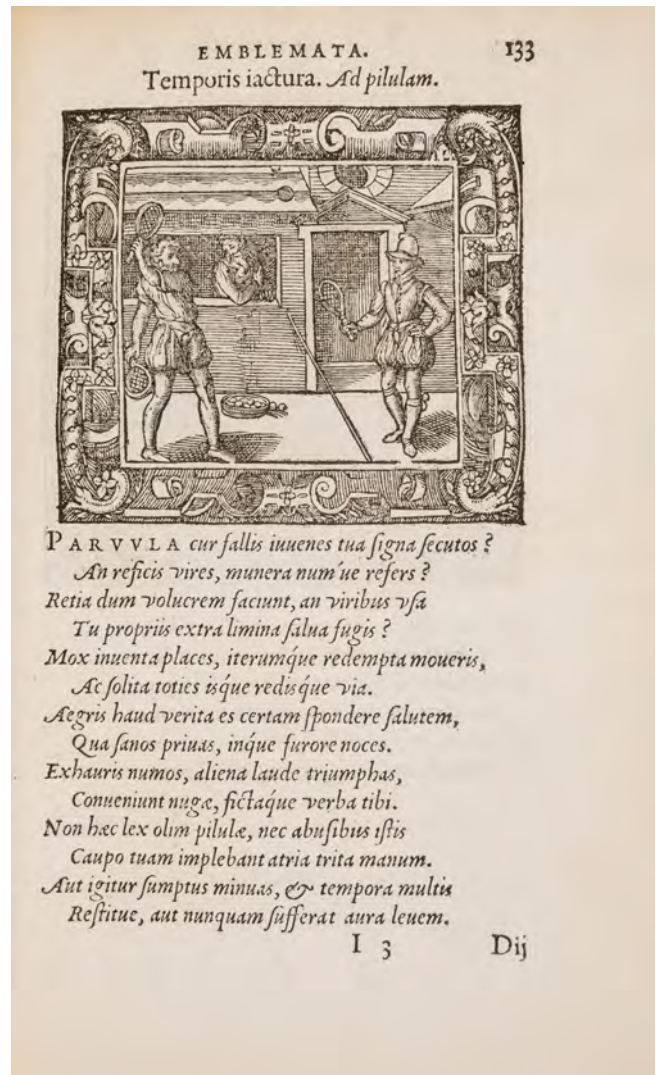 EMBLEMATA. 133
Temporis iactura. Ad pilulam.
PARVVLA cur fallis iuuenes tua signa secutos?
An reficis vires, munera num've refers?
Retia dum volucrem faciunt, an viribus vsa
Tu propriis extra limina salua fugis?
Mox inuenta places, iterumq́ue redempta moueris,
Ac solita toties isq́ue redisq́ue via.
Aegris haud verita es certam spondere salutem,
Qua sanos priuas, inq́ue furore noces.
Exhauris numos, aliena laude triumphas,
Conueniunt nugæ, fictaq́ue verba tibi.
Non hæc lex olim pilulæ, nec abusibus istis
Caupo tuam implebant atria trita manum.
Aut igitur sumptus minuas, & tempora multis
Restitue, aut nunquam sufferat aura leuem.
I 3 Dij